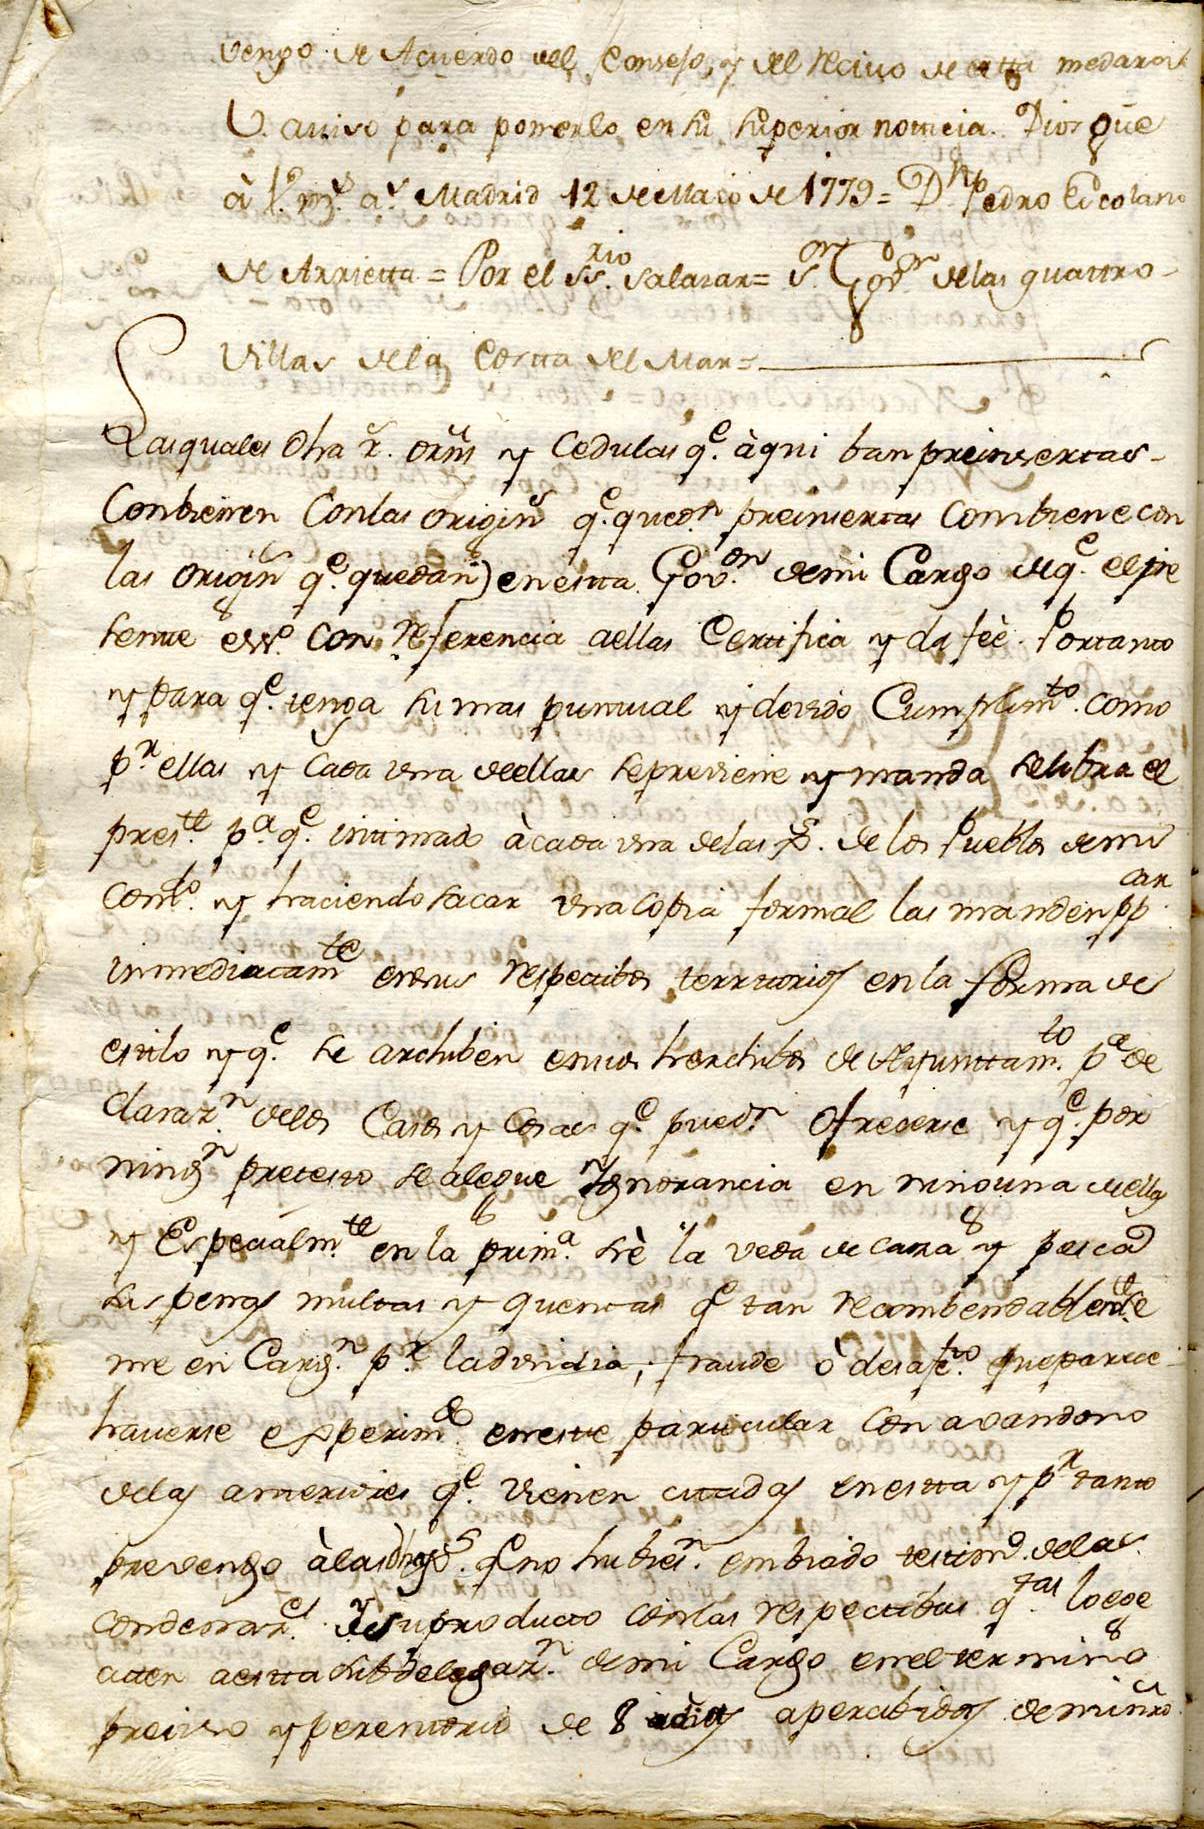 vengo de Acuerdo del Consejo, y del recivo de esta me dará
V. aviso para ponerlo en su superior noticia. Dios gue
à V. ms. as. Madrid 12 de Maio de 1779 = Dn. Pedro Escolano
de Arrietta = Por el ss.rio Salazar = s.or Gov.or de las quattro
Villas de la Costta del Mar =
Las quales Ohra rs. orns y Cedulas q.e àqui ban preinsertas
Conbienen Con las Origins q.e quedn preinsertas Combiene con
las Origin.s q.e quedan) en estta Gov.on de mi Cargo de q.e el pre
sente ess.no con referencia a ellas Certifica y da feè. Por tanto
y para q.e tenga su mas puntual y devido Cumplim.to como
p.r ellas y cada una de ellas se previene y manda se libra el
pres.te p.a q.e intimado à cada una de las Js. de los Pueblos de mi
com.to y haciendo sacar una copia formal las manden pp.car
inmediatam.te en sus respectibos territorios en la forma de
estilo y q.e se archiben en sus harchibos de Ayunttam.to p.a de
claraz.n de los Casos y Cosas q.e pued.n Ofrecerse y q.e por
ning.n pretesto se alegue Ygnorancia en ninguna de ellas
y Especialm.te en la prim.a sre la veda de caza y pesca
sus penas multas y quentas q.e tan recombendablem.te se
me en Carg.n p.r la desidia, fraude ò desafto que parece
haverse experim.do en este particular con avandono
de las anteriores q.e vienen citadas en estta y p.r tanto
prevengo à las dhas Js. q.e no hubies.n embiado testim.o de las
condenaz.s y su producto con las respectibas q.tas lo ege
cuten a estta Subdelegaz.n de mi Cargo en el termino
preciso y perentorio de 8 dias apercibidos de mi